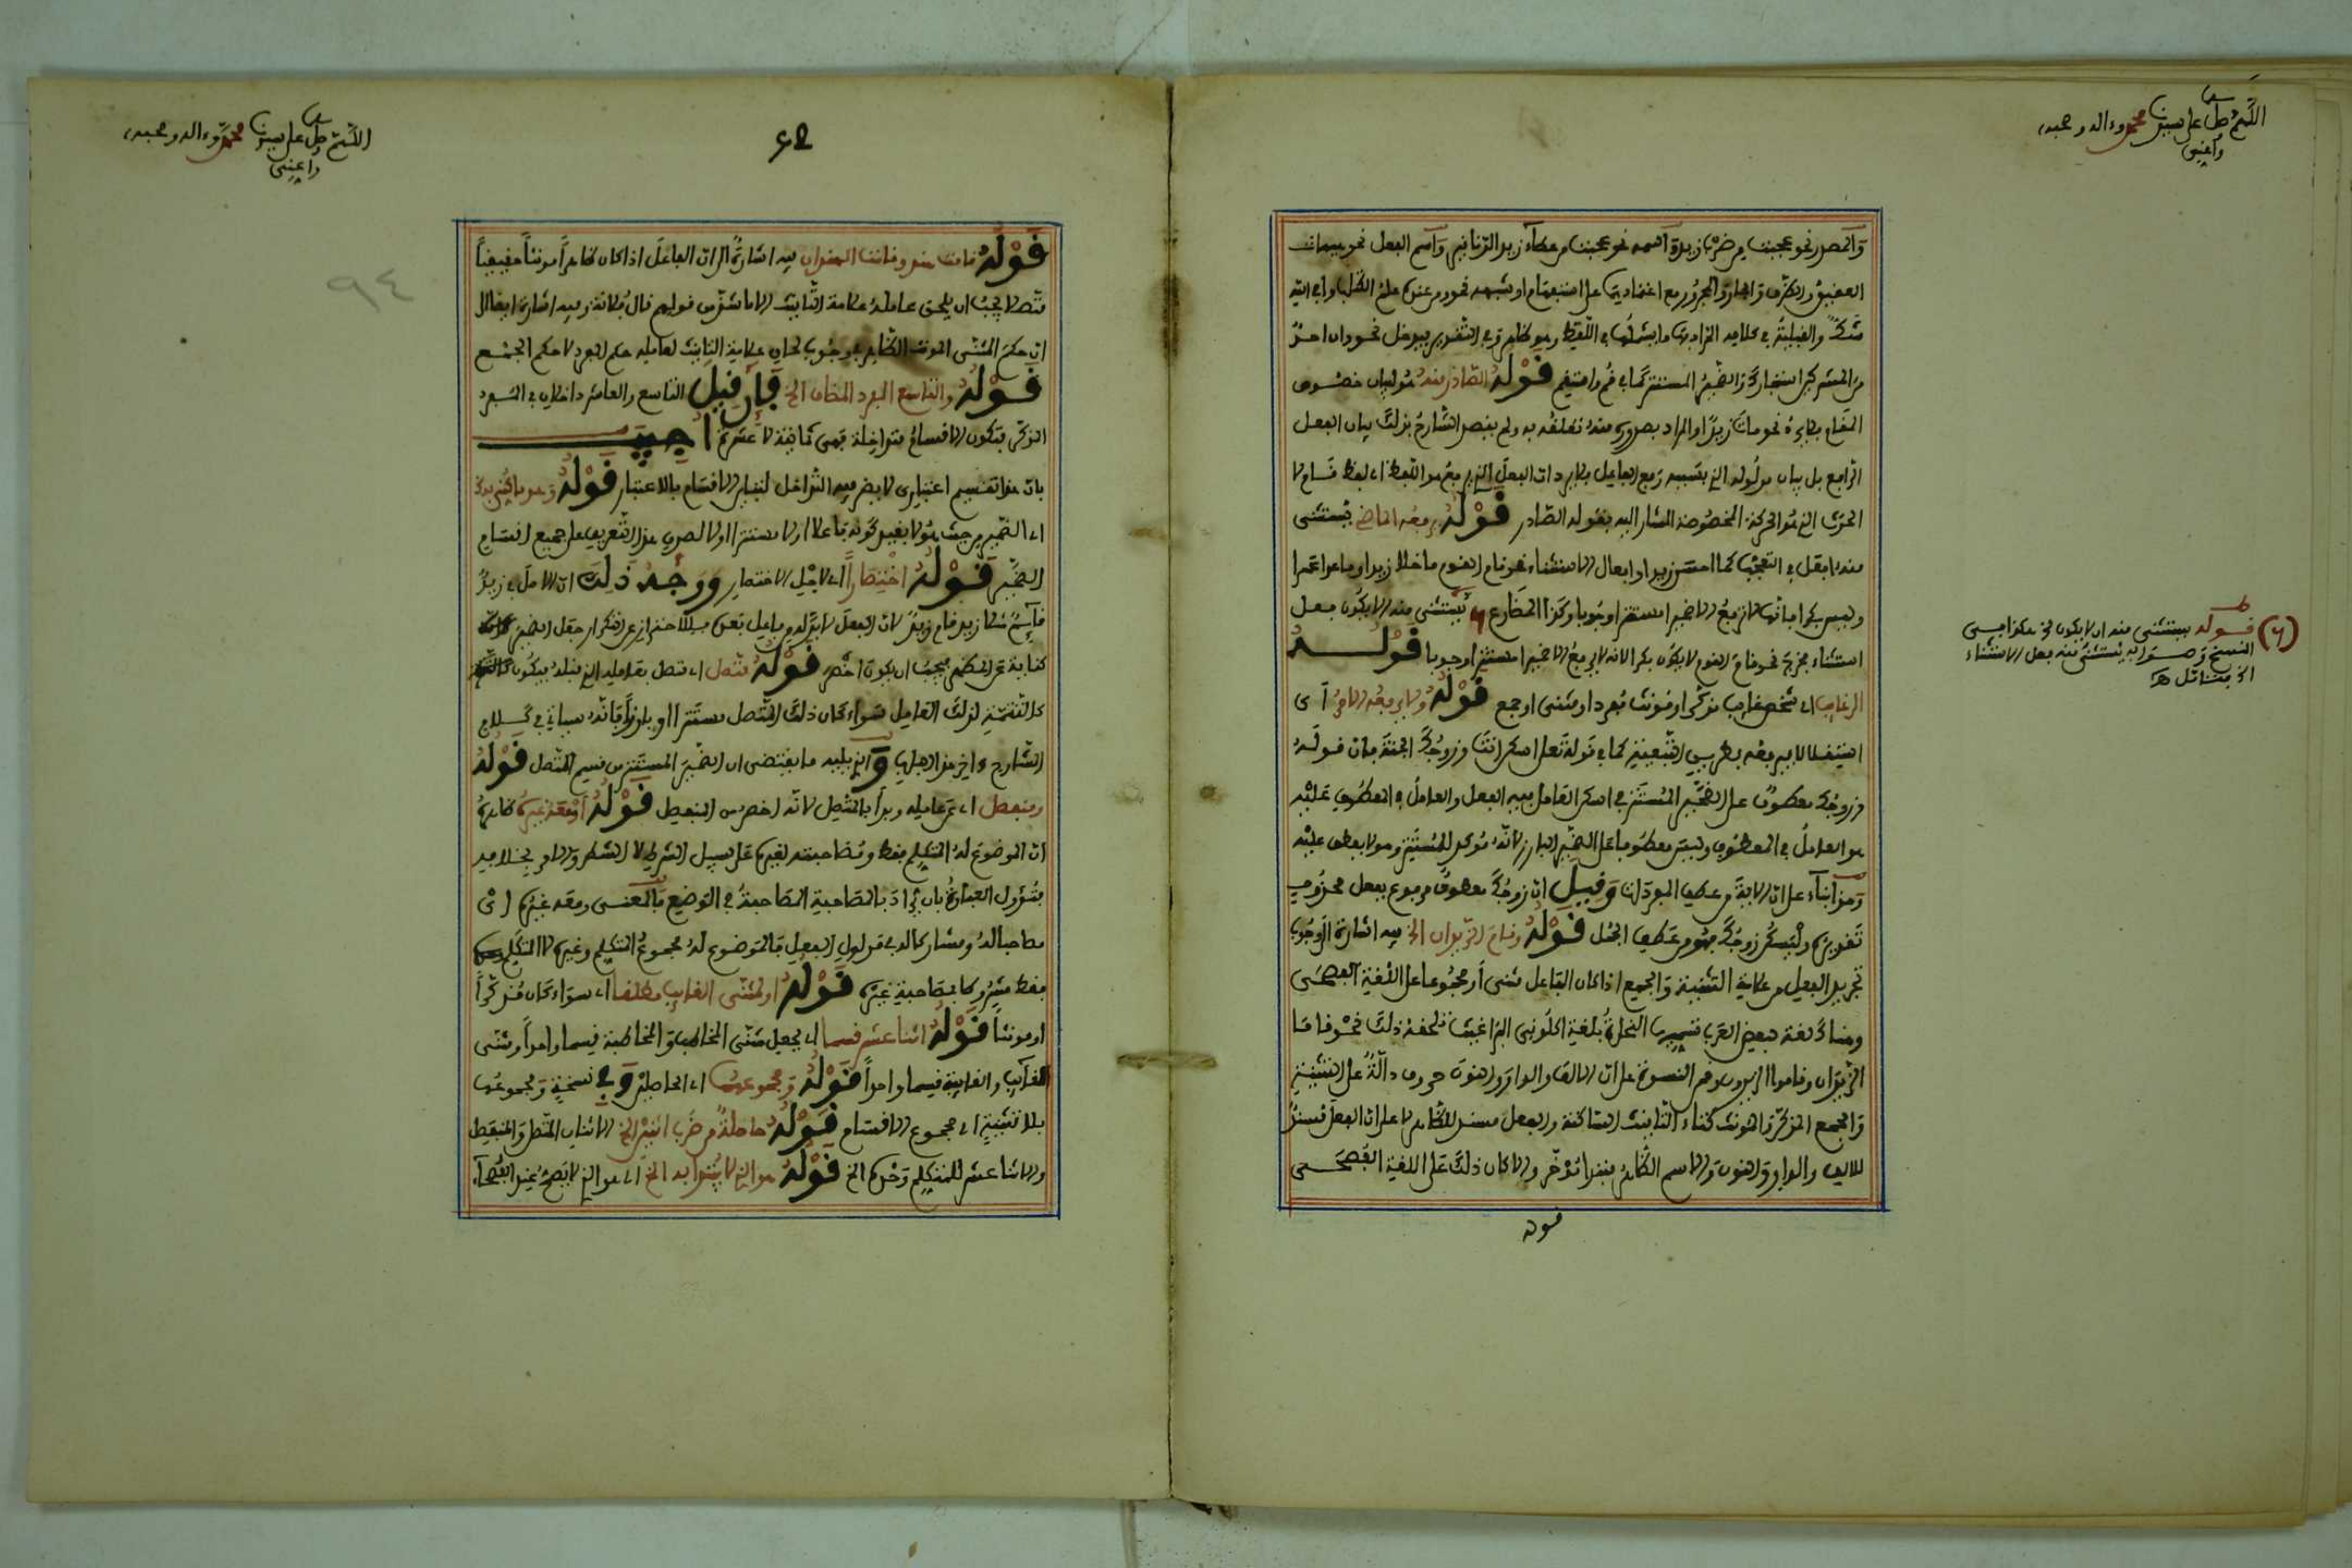 اللهم صل على سيدنا محمد وءاله وصحبه
واغننى
والمصدر نحو عجبت من ضرب زيد واسمه نحو عجبت من عطاء زيد الدنانير واسم الفعل نحو هيهات
العقيق والظرف والجار والمجرور مع اعتمادهما على استفهام او شبهه نحو ومن عنده علم الكتاب وافي الله
شك والقبلية في كلامه المراد بها ما يشملها في اللفظ وهو ظاهر وفي التقدير فيدخل نحو وان احد
من المشركين استجارك والضمير المستتر كما في قم واستقم قوله الصادر منه هو لبيان خصوص
المقام فلا يرد نحو مات زيد او المراد بصدوره منه تعلقه به ولم يقصد الشارح بذلك بيان الفعل
الرافع بل بيان مدلوله الذى بسببه رفع الفاعل فلا يرد ان الفعل الذى يرفع هو اللفظ اى لفظ قام لا
الحدث الذى هو الحركة المخصوصة المشار اليه بقوله الصادر قوله يرفعه الماضى يستثنى
منه افعل في التعجب كما احسن زيدا وافعال الاستثناء نحو قام القوم ما خلا زيدا وما عدا عمرا
وليس بكرا فانها ترفع الاضميرا مستترا وجوبا وكذا المضارع يستثنى منه الا يكون فعل
استثناء مجرى نحو قام القوم لا يكون بكرا لانه لا يرفع الا ضميرا مستترا وجوبا قوله
الى غايب اى شخص غايب مذكرا او مؤنثا مفردا او مثنى او جمع قوله ولا يرفعه الامر اى
استقلالا فيرفعه بطريق التبعية كما في قوله تعلى اسكن انت وزوجك الجنة فان قوله
وزوجك معطوف على الضمير المستتر في اسكن العامل فيه الفعل والعامل في المعطوف عليه
هو العامل في المعطوف وليس معطوفا على الضمير البارز لانه مؤكد للمستتر وهو لا يعطف عليه
وهذا بناء على ان الاية من عطف المفردات وقيل ان زوجك معطوف مرفوع بفعل محذوف
تقديره وليسكن زوجك فهو من عطف الجمل قوله وقام الزيدان الخ فيه اشارة الى وجوب
تجريد الفعل من علامة التثنية والجمع اذا كان الفاعل مثنى او مجموعا على اللغة الفصحى
وهناك لغة لبعض العرب تسميها النحاة بلغة اكلونى البراغيث تلحقه ذلك نحو قاما
الزيدان وقاموا الزيدون وقمن النسوة على ان الالف والواو والنون حروف دالة على التثنية
والجمع المذكر والمؤنث كتاء التانيث الساكنة والفعل مسند للظاهر لا على ان الفعل مسند
للالف والواو والنون والاسم الظاهر مبتدا مؤخر والا كان ذلك على اللغة الفصحى
قوله
(٦) قوله يستثنى منه ان لا يكون الخ هكذا في
النسخ وصوابه يستثنى منه فعل الاستثناء
الخ فتامل هـ
اللهم صل على سيدنا محمد وءاله وصحبه
واغننى
٩٤
قوله قامت هند وقامت الهندان فيه اشارة الى ان الفاعل اذا كان ظاهرا مؤنثا حقيقيا
متصلا يجب ان يلحق عامله علامة التانيث الا ما شذ من قولهم قال فلانة وفيه اشارة ايضا الى
ان حكم المثنى المؤنث الظاهر في وجوب لحاق علامة التانيث لعامله حكم المفرد لا حكم الجمع
قوله والتاسع المفرد المضاف الخ فإن قيل التاسع والعاشر داخلان في المفرد
المذكر فتكون الاقسام متداخلة فهى ثمانية لا عشرة اجيب
بان هذا تقسيم اعتبارى لا يضر فيه التداخل لتباين الاقسام بالاعتبار قوله وهو ما كنى به
اى الضمير من حيث هو لا بقيد كونه فاعلا او لا مستترا او لا لصدق هذا التعريف على جميع اقسام
الضمير قوله اختصارا اى لاجل الاختصار ووجه ذلك ان الاصل في زيد
قايم مثلا زيد قام زيد لان الفعل لابد له من فاعل فعدل للاحتراز عن التكرار جعل الضمير
كناية عن المظهر فيجب ان يكون اخصر قوله متصل اى متصل بعامله الذى قبله فيكون
كالتتمة لذلك العامل سواء كان ذلك المتصل مستترا او بارزا فانه سياتى في كلام
الشارح ءاخر هذا الباب والذى يليه ما يقتضى ان الضمير المستتر من قسم المتصل قوله
ومنفصل اى عن عامله وبدا بالمتصل لانه اخصر من المنفصل قوله او معه غيره ظاهره
ان الموضوع له المتكلم فقط ومصاحبته لغيره على سبيل الشرط لا الشطر والامر بخلافه
فتؤول العبارة بان يراد بالمصاحبة المصاحبة في الوضع فالمعنى ومعه غيره اى
مصاحبا له ومشاركا له في مدلول الفعل فالموضوع له مجموع المتكلم وغيره لا المتكلم
فقط مشروطا بمصاحبة غيره قوله او لمثنى الغايب مطلقا اى سواء كان مذكرا
او مؤنثا قوله اثنا عشر قسما اى بجعل مثنى المخاطب والمخاطبة قسما واحدا ومثنى
الغايب والغايبة قسما واحدا قوله ومجموعهما اى الحاصلين وفي نسخة ومجموعها
بلا تثنية اى مجموع الاقسام قوله حاصلة من ضرب اثنين الخ الاثنان المتصل والمنفصل
والاثنا عشر للمتكلم وحده الخ قوله هو الذى لا يبتدا به الخ اى هو الذى لا يصح عند الفصحاء